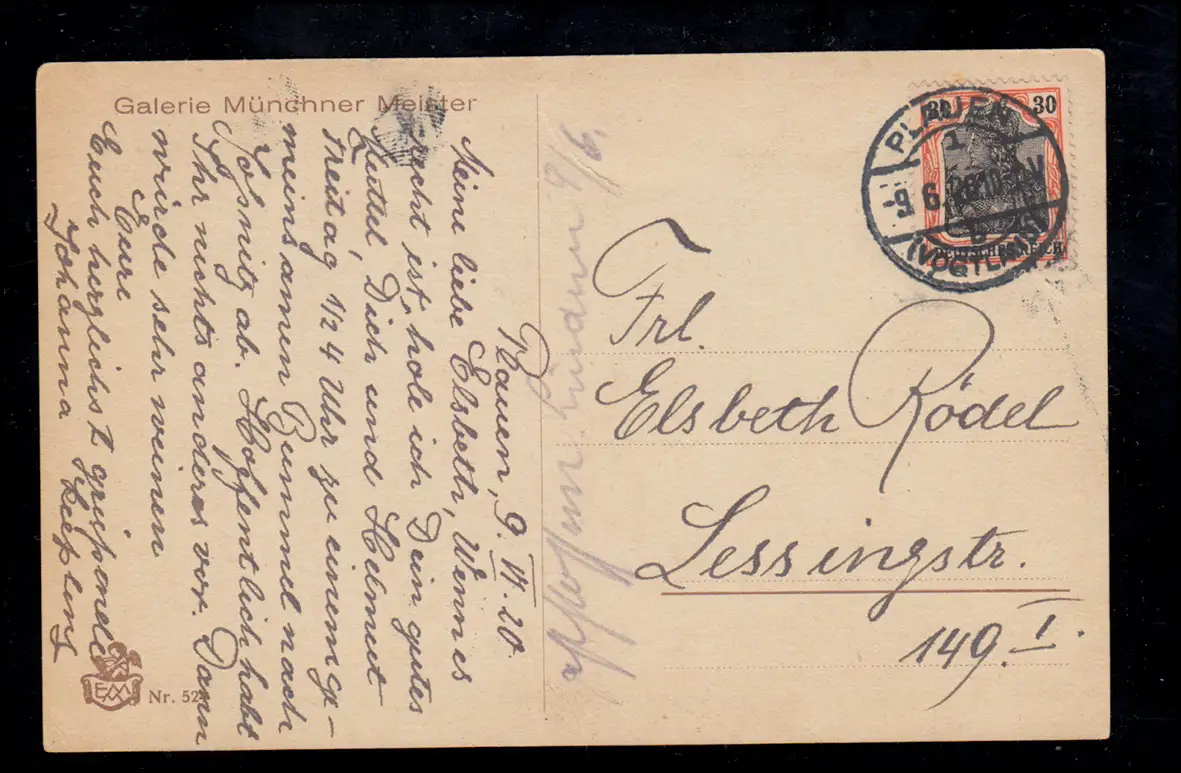 Galerie Münchner Meister
Plauen, 9. VI. 20.
Meine liebe Elsbeth, Wenn es
recht ist, hole ich Dein gutes
Muttel, Dich und Helmut
Freitag 1/2 4 Uhr zu einem ge-
meinsamen Bummel nach
Jößnitz ab. Hoffentlich habt
Ihr nichts anderes vor. Dann
würde sehr weinen
Eure
Euch herzlichst grüßende
Johanna
Nr. 52
9/6.
30 30
DEUTSCHES REICH
PLAUEN
1
-9.6.20.10-11V
b
(VOGTLAND)
Frl.
Elsbeth Rödel
Lessingstr.
149. I.